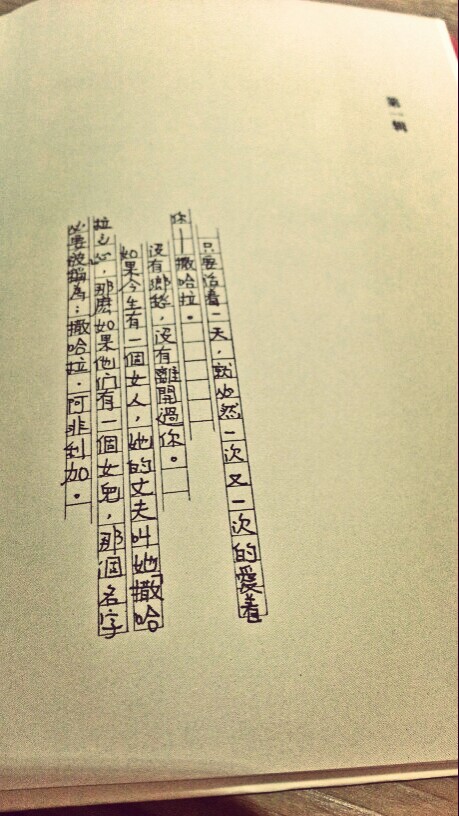 第一輯
只要活着一天，就必然一次又一次的愛着
你——撒哈拉。
沒有鄉愁，沒有離開過你。
如果今生有一個女人，她的丈夫叫她撒哈
拉之心，那麼如果他们有一個女兒，那個名字
必要被稱為：撒哈拉·阿非利加。